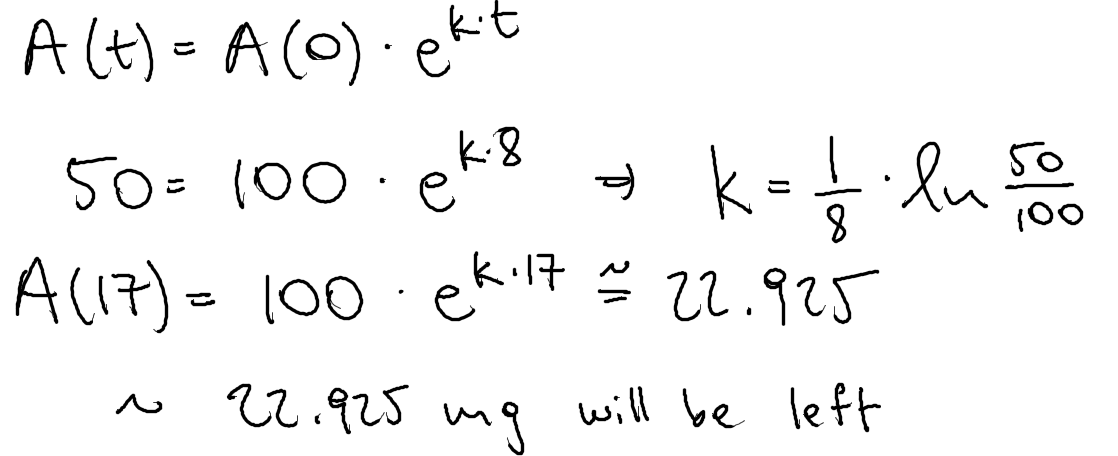 A(t) = A(0) · e^{k·t}
50 = 100 · e^{k·8} ⇒ k = 1/8 · ln 50/100
A(17) = 100 · e^{k·17} ≅ 22.925
~ 22.925 mg will be left